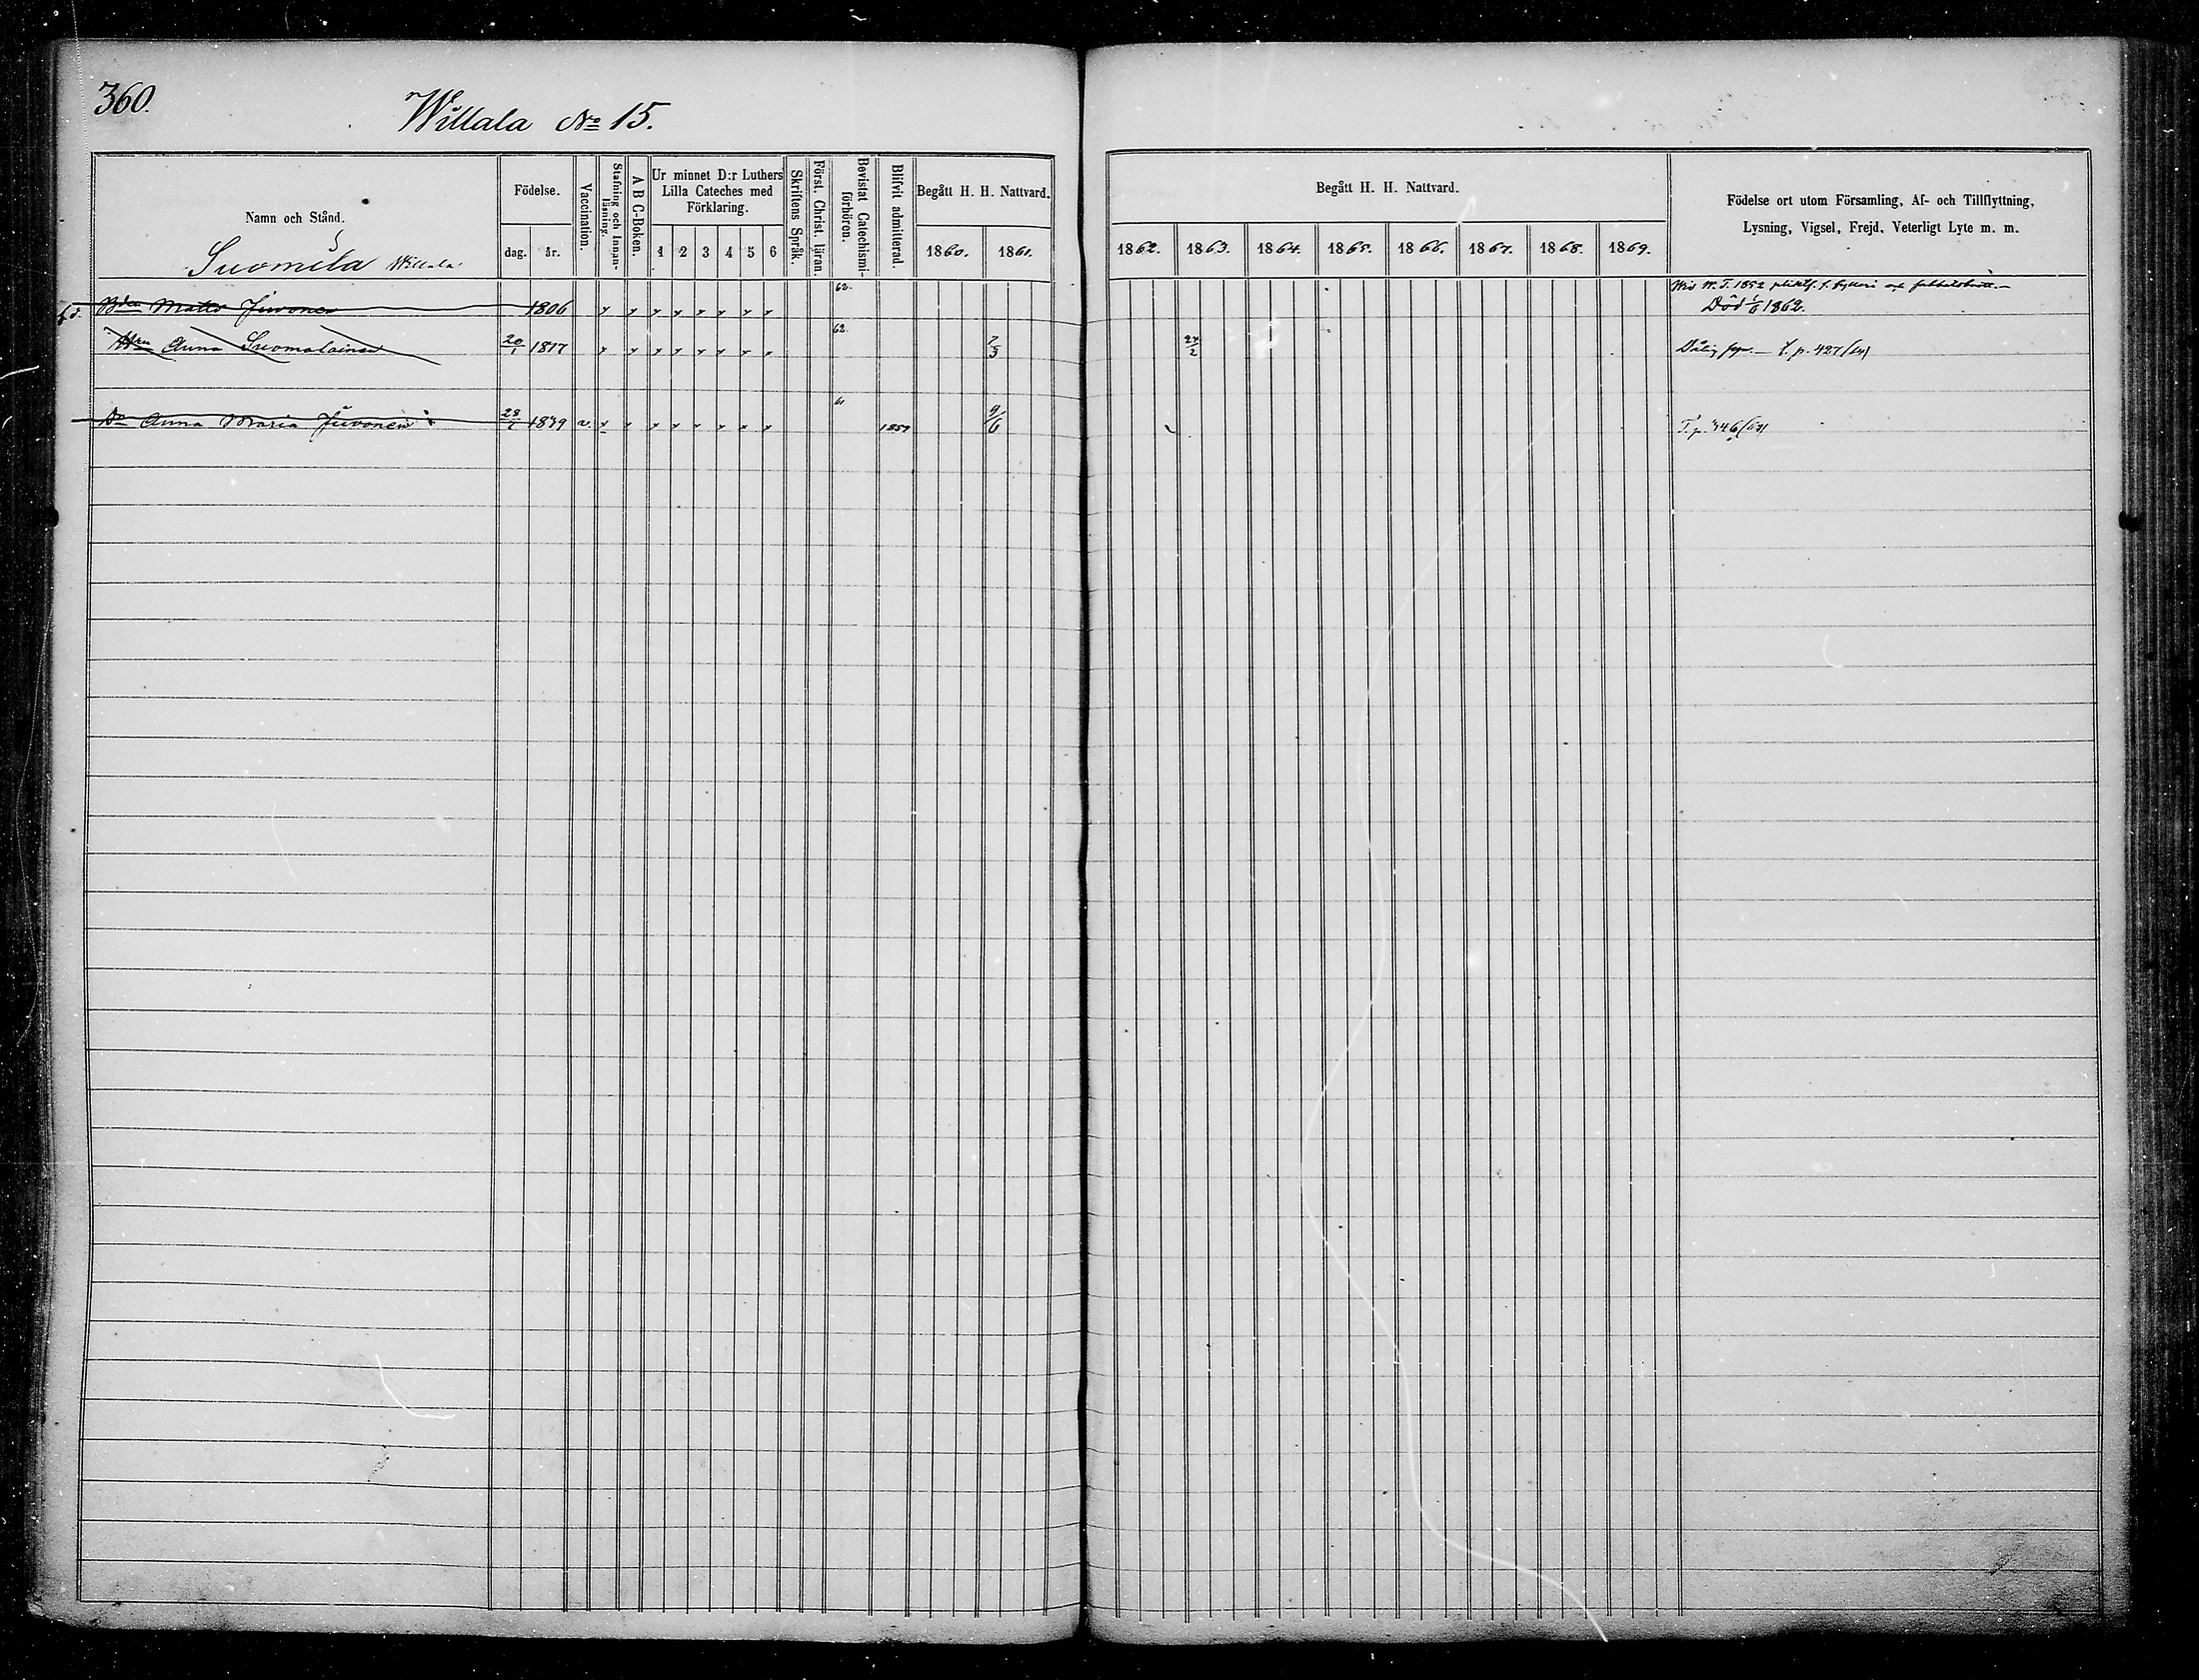 360.
Willala No 15.
Namn och Stånd.
Födelse.
dag. år.
Vaccination.
Stafning och Innan-läsning.
A B C-Boken.
Ur minnet D:r Luthers
Lilla Cateches med
Förklaring.
1 2 3 4 5 6
Skriftens Språk.
Först. Christ. läran.
Bevistat Catechismi-förhören.
Blifvit admitterad.
Begått H. H. Nattvard.
1860. 1861.
Begått H. H. Nattvard.
1862. 1863. 1864. 1865. 1866. 1867. 1868. 1869.
Födelse ort utom Församling, Af- och Tillflyttning,
Lysning, Vigsel, Frejd, Veterligt Lyte m. m.
Suomela Willala
Matts Juvonen 1806 62. W. T. 1852
Död 1/6 1862.
Anna Suomalainen 20/1 1817 62. 7/3 24/2 Dålig p. 427
Anna Maria Juvonen 1839 v. 61 1857 9/6 T. p.